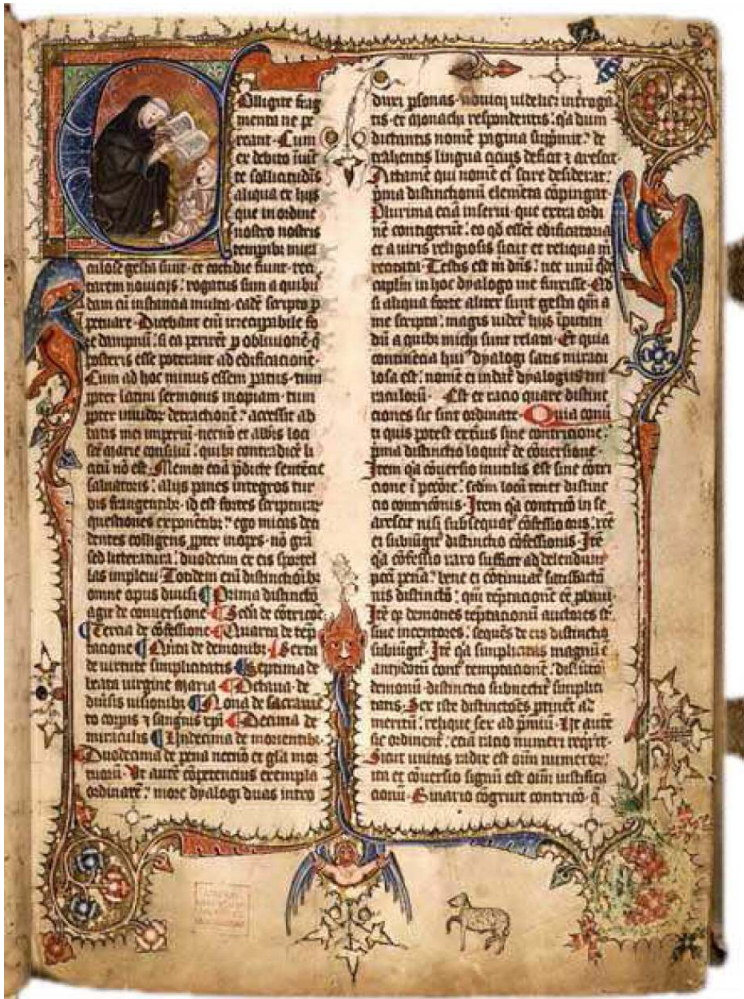 Colligite frag
menta ne pe
reant · Cum
ex debito iniūc
te sollicitudīs
aliqua ex hijs
que in ordine
nostro nostris
temporibꝫ mira
culose gesta sunt · et cottidie fiunt · reci
tarem nouicijs · rogatus sum a quibus
dam cū instancia multa · eadē scripto ꝑ
petuare · Dicebant eni̅ irrecuperabile fo
re dampnū · si ea perirēt ꝑ obliuionē q̄
posteris esse poterant ad edificacionē ·
Cum ad hoc minus essem paratus · tum
ꝓpter latini sermonis inopiam · tum
ꝓpter inuidoꝝ detractionē · accessit ab
batis mei imperiū · necnō et abbīs loci
scē marie consiliū · quibꝫ contradicē li
citū nō est · Memor eciā p̄dicte sentētie
saluatoris · alijs panes integros tur
bis frangentibꝫ · id est fortes scripturaꝝ
questiones exponētibꝫ · ego micas deci
dentes colligens ꝓpter inopes · nō gr̄a
sed litteratura · duodecim ex eis sportel
las impleui · Totidem eni̅ distinctōibꝫ
omne opus diuisi · Prima distinctō
agit de conuersione · Secūda de cōtricōe
Tercia de cōfessione · Quarta de temp
tacione · Quīta de demonibꝫ · Sexta
de virtute simplicitatis · Septima de
beata uirgine maria · Octaua · de
diu̅sis uisionibꝫ · Nona de sacramē
to corꝑis et sanguīs xp̄i · Decima de
miraculis · Undecima de morientibꝫ
Duodecima de pena necnō et gl̄a mor
tuoꝝ · Ut autē cōpetencius exempla
ordinarē · more dyalogi duas intro
duxi ꝑsonas · nouicij uidelicꝫ introga
tis · et monachi respondentis · q̄a dum
dictantis nomē pagina supprimit · de
trahentis lingua cicius deficit et arescit ·
Attamē qui nomē eius scire desiderat ·
prima distinctionū elemēta cōpingat ·
Plurima eciā inserui · que extra ordi
nē contigerūt · eo qd̄ essēt edificatoria
et a uiris religiosis sicut et reliqua m̄
recitata · Testis est m̄ dn̄s · nec unū qͥdē
capl̄m in hoc dyalogo me finxisse · Qd̄
si aliqua forte aliter sunt gesta qm̄ a
me scripta · magis uidēt̄ hijs īputan
dū a quibꝫ michi sunt relata · Et quia
continēcia huiꝰ dyalogi satis miracu
losa est · nomē ei indidi dyalogus mi
raculoꝝ · Est et racio quare distinc
ciones sic sint ordinate · Quia conu̅
ti quis potest extͥus sine contricione ·
prima distinctio loquit̄ de cōuersione ·
Item q̄a cōuersio inutilis est sine cōtri
cione ī pectore · scdm̄ locū tenet distinc
cio contricōnis · Item q̄a contricō in se
arescit nisi subsequat̄ cōfessio oris · recte
ei subiūgit̄ distinctio cōfessionis · Itē
q̄a cōfessio raro sufficit ad delendum
pcc̄i penā · bene ei cōtinuat̄ satisfactō
nis distinctō · qm̄ teptacionē cē planū ·
Itē qͥ demones temptacionū auctores st̄ ·
siue incentores · sequēs de eis distinctio
subiūgit̄ · Itē q̄a simplicitas magnū ē
antydotū contͣ temptacionē · distincō
demonū · distinctio subnectit̄ simplici
tatis · Sex iste distinctiōes ꝑtinēt ad
meritū · relique sex ad p̄miū · Ut autē
sic ordinent̄ · eciā racio numeri reqͥrit ·
Sicut unitas radix est omīm numeroꝝ ·
ita et cōuersio signū est omīm iustifica
cionū · Binario cōgruit contricō · q̄